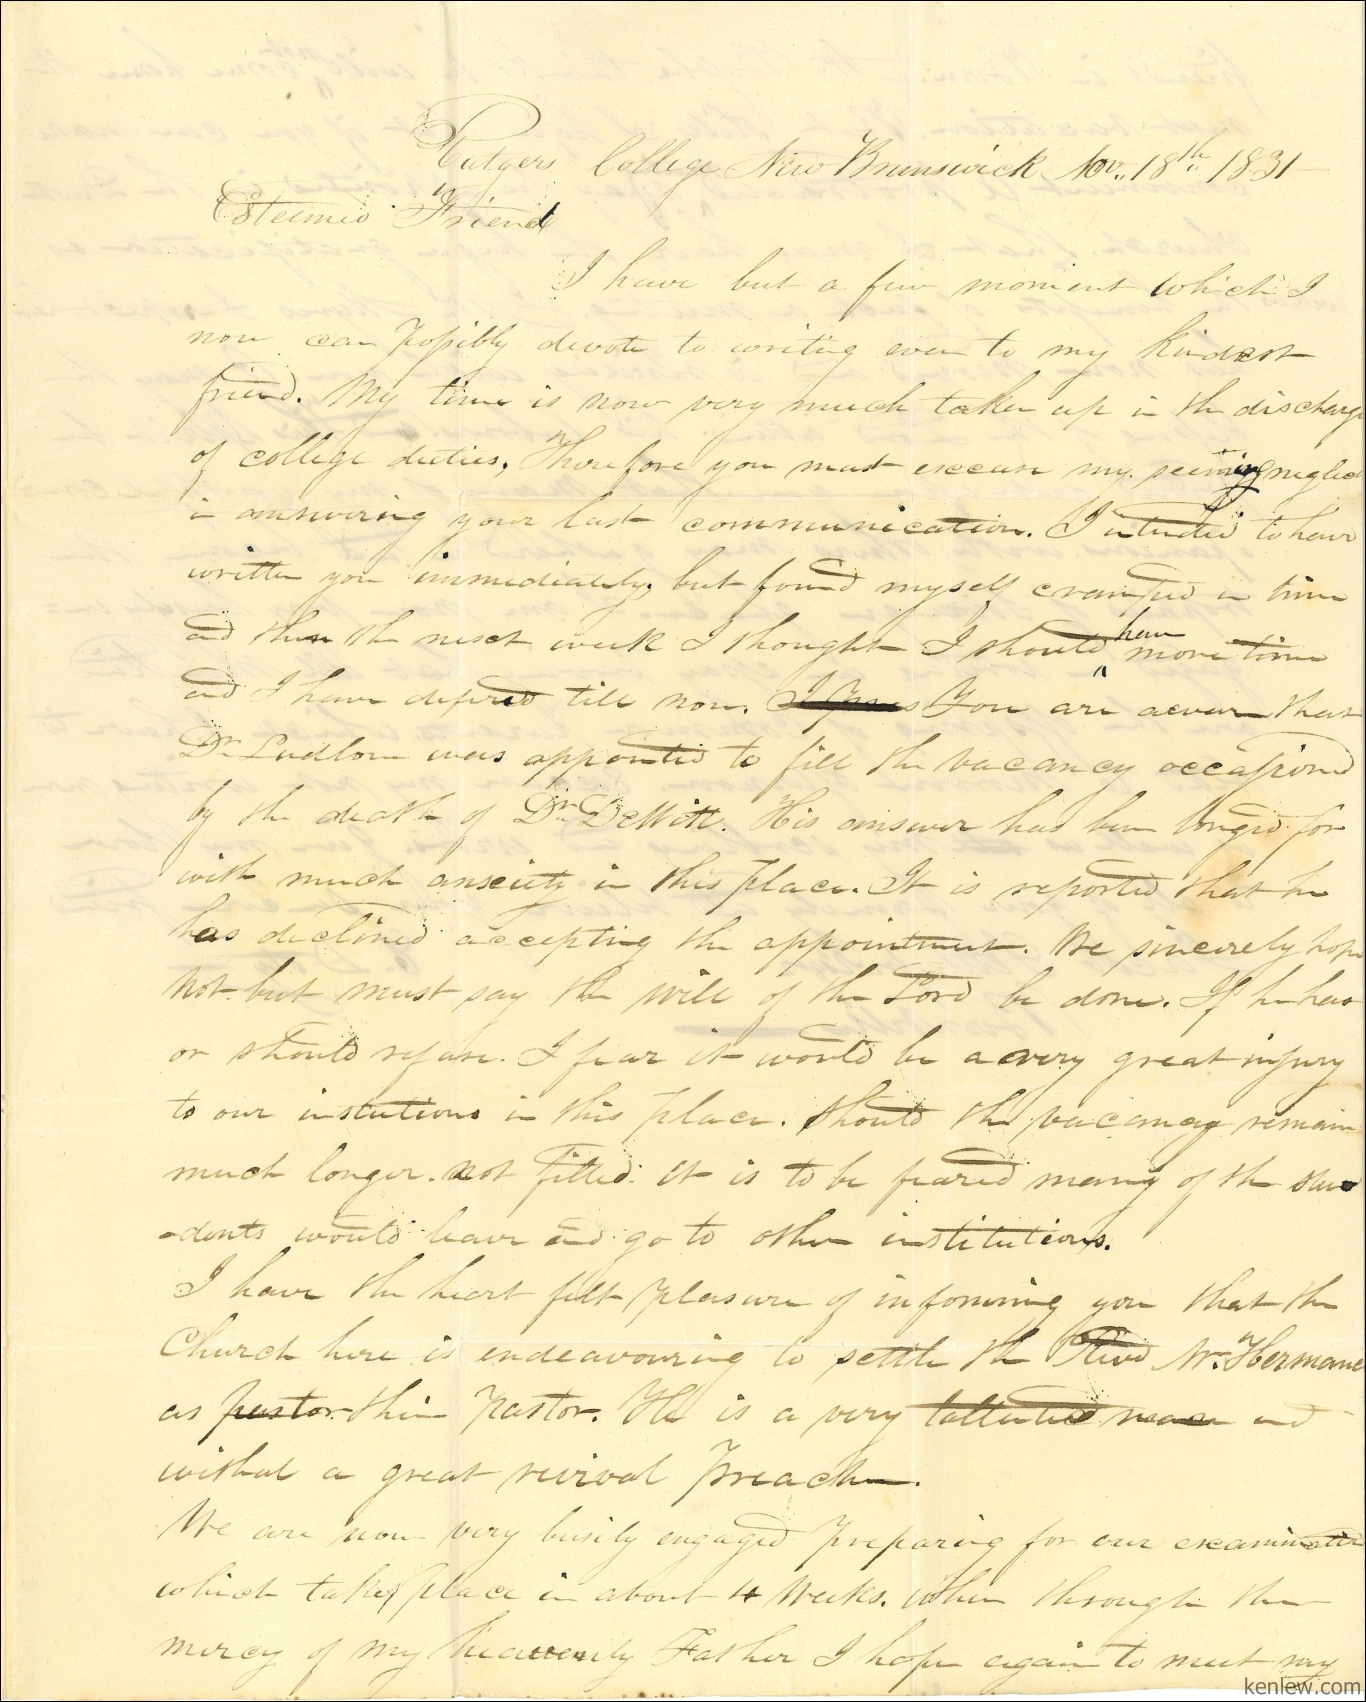 Rutgers College New Brunswick Nov. 18th 1831
Esteemed Friend
I have but a few moment which I
now can possibly devote to writing even to my kindest
friend. My time is now very much taken up in the discharge
of college duties, Therefore you must excuse my seeming neglect
in answering your last communication. I intended to have
written you immediately, but found myself cramped in time
and then the next week I thought I should have more time
and I have defered till now. You are aware that
Dr Ludlow was appointed to fill the vacancy occasioned
by the death of Dr DeWitt. His answer has been longed for
with much anxiety in this place. It is reported that he
has declined accepting the appointment. We sincerely hope
not but must say the will of the Lord be done. If he has
or should refuse. I fear it would be a very great injury
to our instutions in this place. Should the vacancy remain
much longer not filled. it is to be feared many of the stu
-dents would leave and go to other institutions.
I have the heart felt pleasure of informing you that the
Church here is endeavouring to settle the Revd Mr. Hermance
as pastor their Pastor. He is a very tallented man and
withal a great revival Preacher.
We are now very busily engaged preparing for our examination
which takes place in about 4 Weeks. When through the
mercy of my heavenly Father I hope again to meet my
kenlew.com